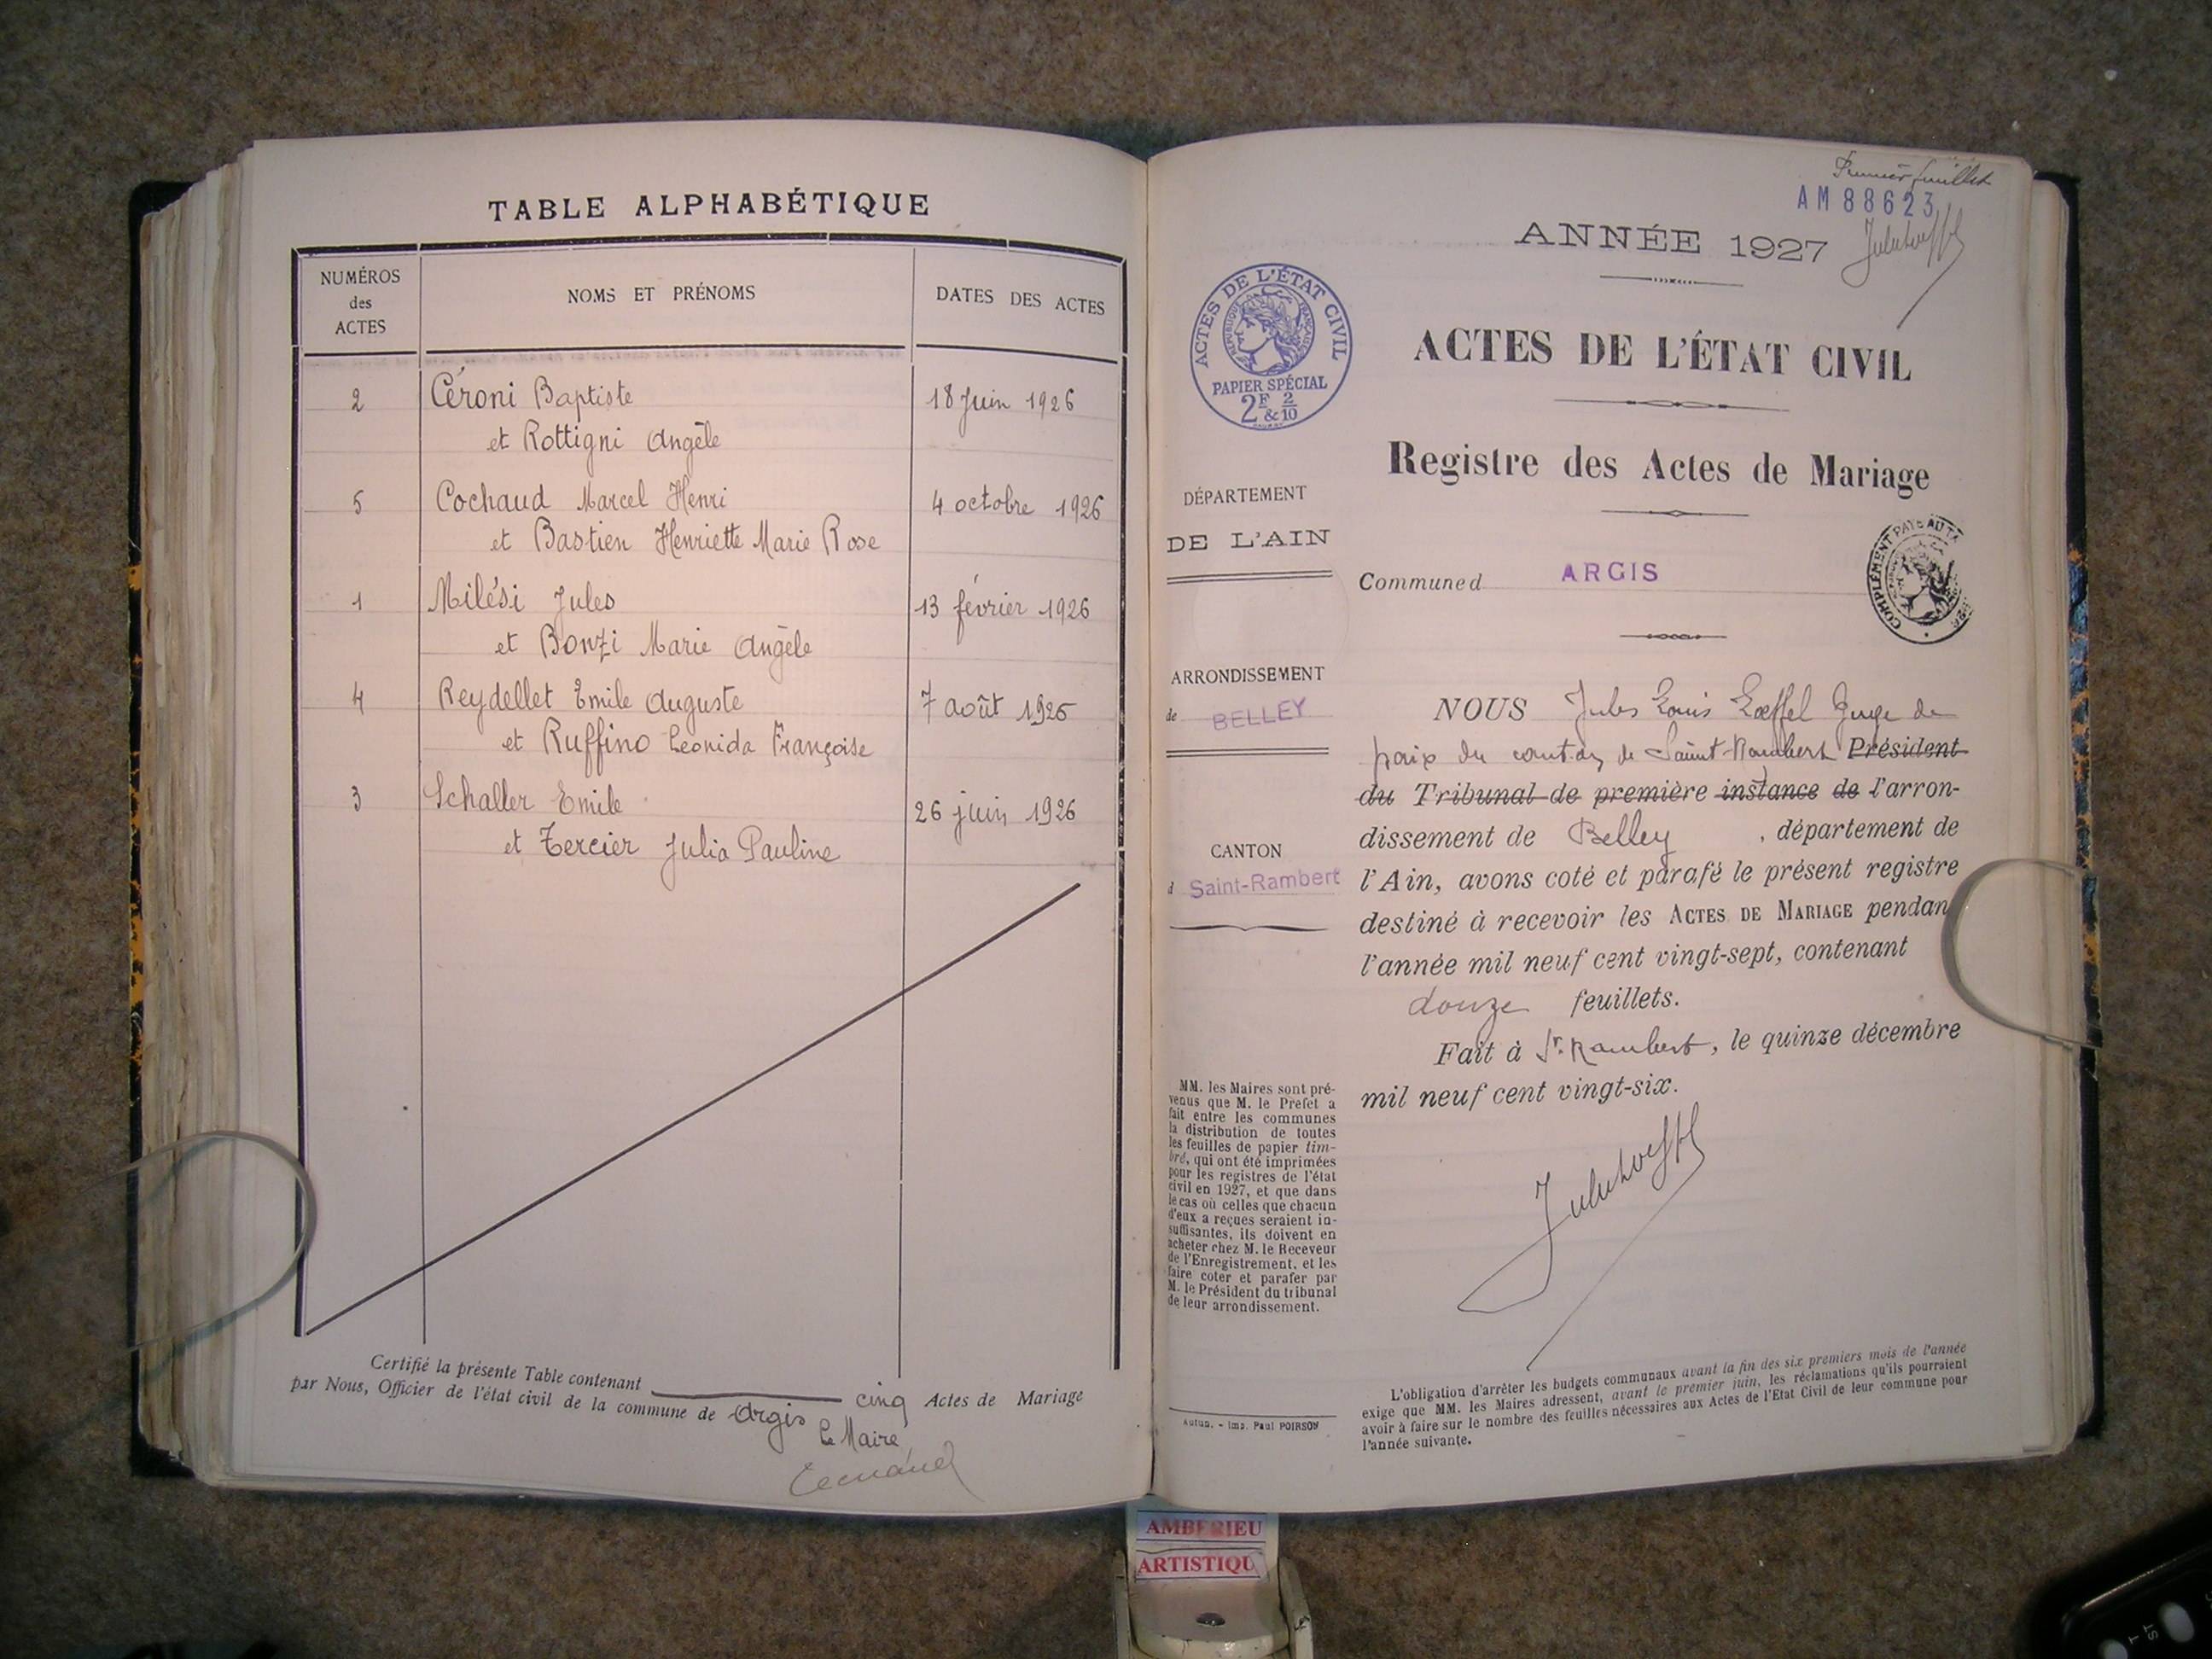 TABLE ALPHABÉTIQUE
NUMÉROS des ACTES
NOMS ET PRÉNOMS
DATES DES ACTES
2 Céroni Baptiste 18 Juin 1926
et Rottigni Angèle
5 Cochaud Marcel Henri 4 octobre 1926
et Bastien Henriette Marie Rose
1 Milési Jules 13 février 1926
et Bonzi Marie Angèle
4 Reydellet Emile Auguste 7 août 1926
et Ruffino Léonida Françoise
3 Schaller Emile 26 juin 1926
et Tercier Julia Pauline
Certifié la présente Table contenant cinq Actes de Mariage
par Nous, Officier de l'état civil de la commune de Argis
Le Maire
Premier feuillet
AM 88623
ANNÉE 1927
ACTES DE L'ÉTAT CIVIL
RÉPUBLIQUE FRANÇAISE
PAPIER SPÉCIAL
2F & 2/10
ACTES DE L'ÉTAT CIVIL
Registre des Actes de Mariage
DÉPARTEMENT
DE L'AIN
Commune d ARGIS
COMPLÉMENT PAYÉ AU
ARRONDISSEMENT
de BELLEY
CANTON
d Saint-Rambert
MM. les Maires sont pré-
venus que M. le Préfet a
fait entre les communes
la distribution de toutes
les feuilles de papier tim-
bré, qui ont été imprimées
pour les registres de l'état
civil en 1927, et que dans
le cas où celles que chacun
d'eux a reçues seraient in-
suffisantes, ils doivent en
acheter chez M. le Receveur
de l'Enregistrement, et les
faire coter et parafer par
M. le Président du tribunal
de leur arrondissement.
Autun. - Imp. Paul POIRSON
NOUS Jules Louis Loeffel Juge de
paix du canton de Saint-Rambert Président
du Tribunal de première instance de l'arron-
dissement de Belley, département de
l'Ain, avons coté et parafé le présent registre
destiné à recevoir les ACTES DE MARIAGE pendan
l'année mil neuf cent vingt-sept, contenant
douze feuillets.
Fait à St. Rambert, le quinze décembre
mil neuf cent vingt-six.
L'obligation d'arrêter les budgets communaux avant la fin des six premiers mois de l'année
exige que MM. les Maires adressent, avant le premier juin, les réclamations qu'ils pourraient
avoir à faire sur le nombre des feuilles nécessaires aux Actes de l'Etat Civil de leur commune pour
l'année suivante.
AMBERIEU
ARTISTIQU